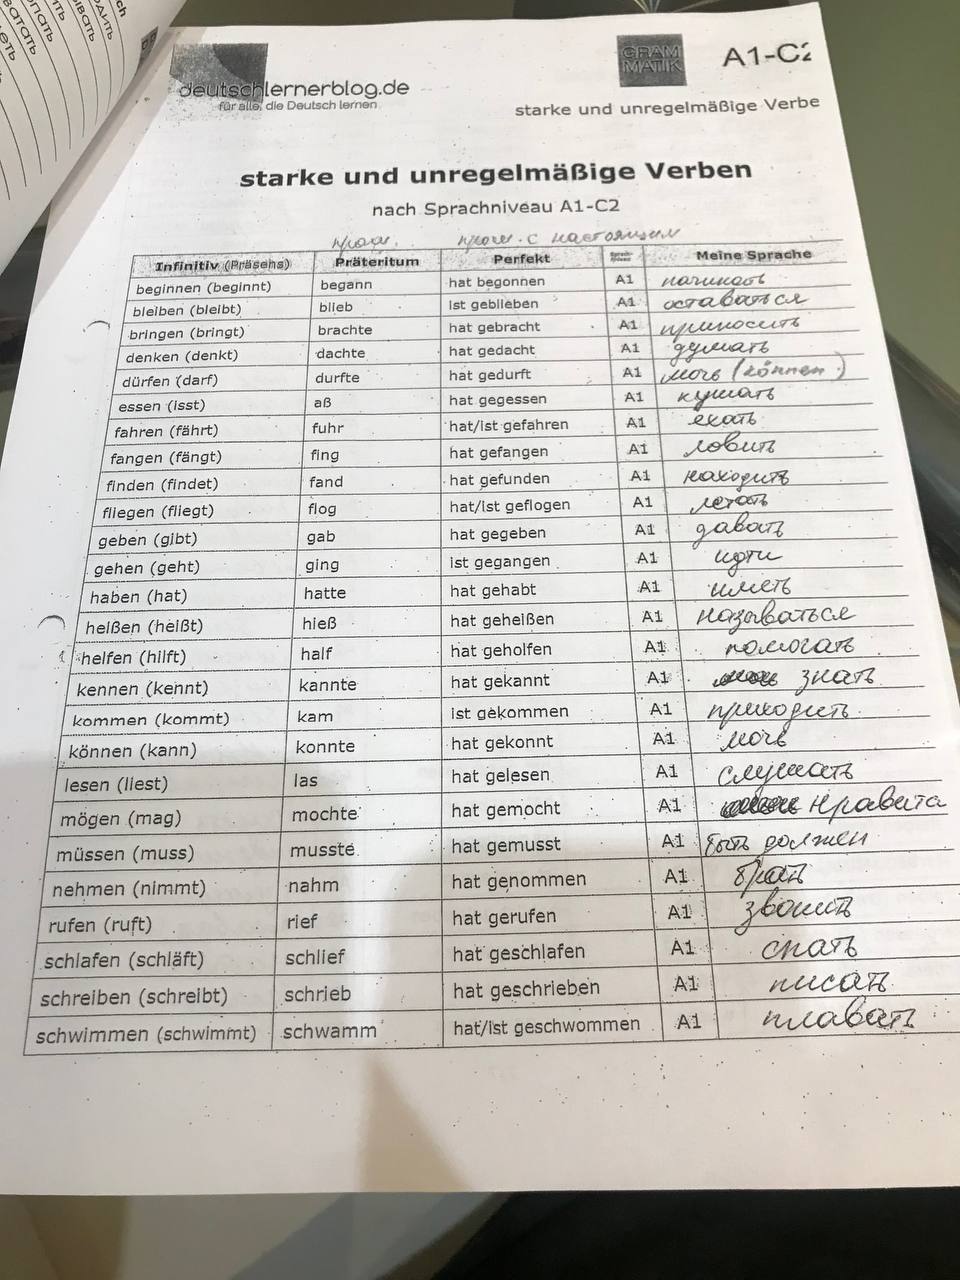 deutschlernerblog.de
für alle, die Deutsch lernen
GRAM
MATIK
A1-C2
starke und unregelmäßige Verbe
starke und unregelmäßige Verben
nach Sprachniveau A1-C2
прош. с настоящим
Infinitiv (Präsens) Präteritum Perfekt Meine Sprache
beginnen (beginnt) begann hat begonnen A1 начинать
bleiben (bleibt) blieb ist geblieben A1 оставаться
bringen (bringt) brachte hat gebracht A1 приносить
denken (denkt) dachte hat gedacht A1 думать
dürfen (darf) durfte hat gedurft A1 мочь (können)
essen (isst) aß hat gegessen A1 кушать
fahren (fährt) fuhr hat/ist gefahren A1 ехать
fangen (fängt) fing hat gefangen A1 ловить
finden (findet) fand hat gefunden A1 находить
fliegen (fliegt) flog hat/ist geflogen A1 летать
geben (gibt) gab hat gegeben A1 давать
gehen (geht) ging ist gegangen A1 идти
haben (hat) hatte hat gehabt A1 иметь
heißen (heißt) hieß hat geheißen A1 называться
helfen (hilft) half hat geholfen A1 помогать
kennen (kennt) kannte hat gekannt A1 знать
kommen (kommt) kam ist gekommen A1 приходить
können (kann) konnte hat gekonnt A1 мочь
lesen (liest) las hat gelesen A1 слушать
mögen (mag) mochte hat gemocht A1 нравита
müssen (muss) musste hat gemusst A1 быть должен
nehmen (nimmt) nahm hat genommen A1 брать
rufen (ruft) rief hat gerufen A1 звонить
schlafen (schläft) schlief hat geschlafen A1 спать
schreiben (schreibt) schrieb hat geschrieben A1 писать
schwimmen (schwimmt) schwamm hat/ist geschwommen A1 плавать